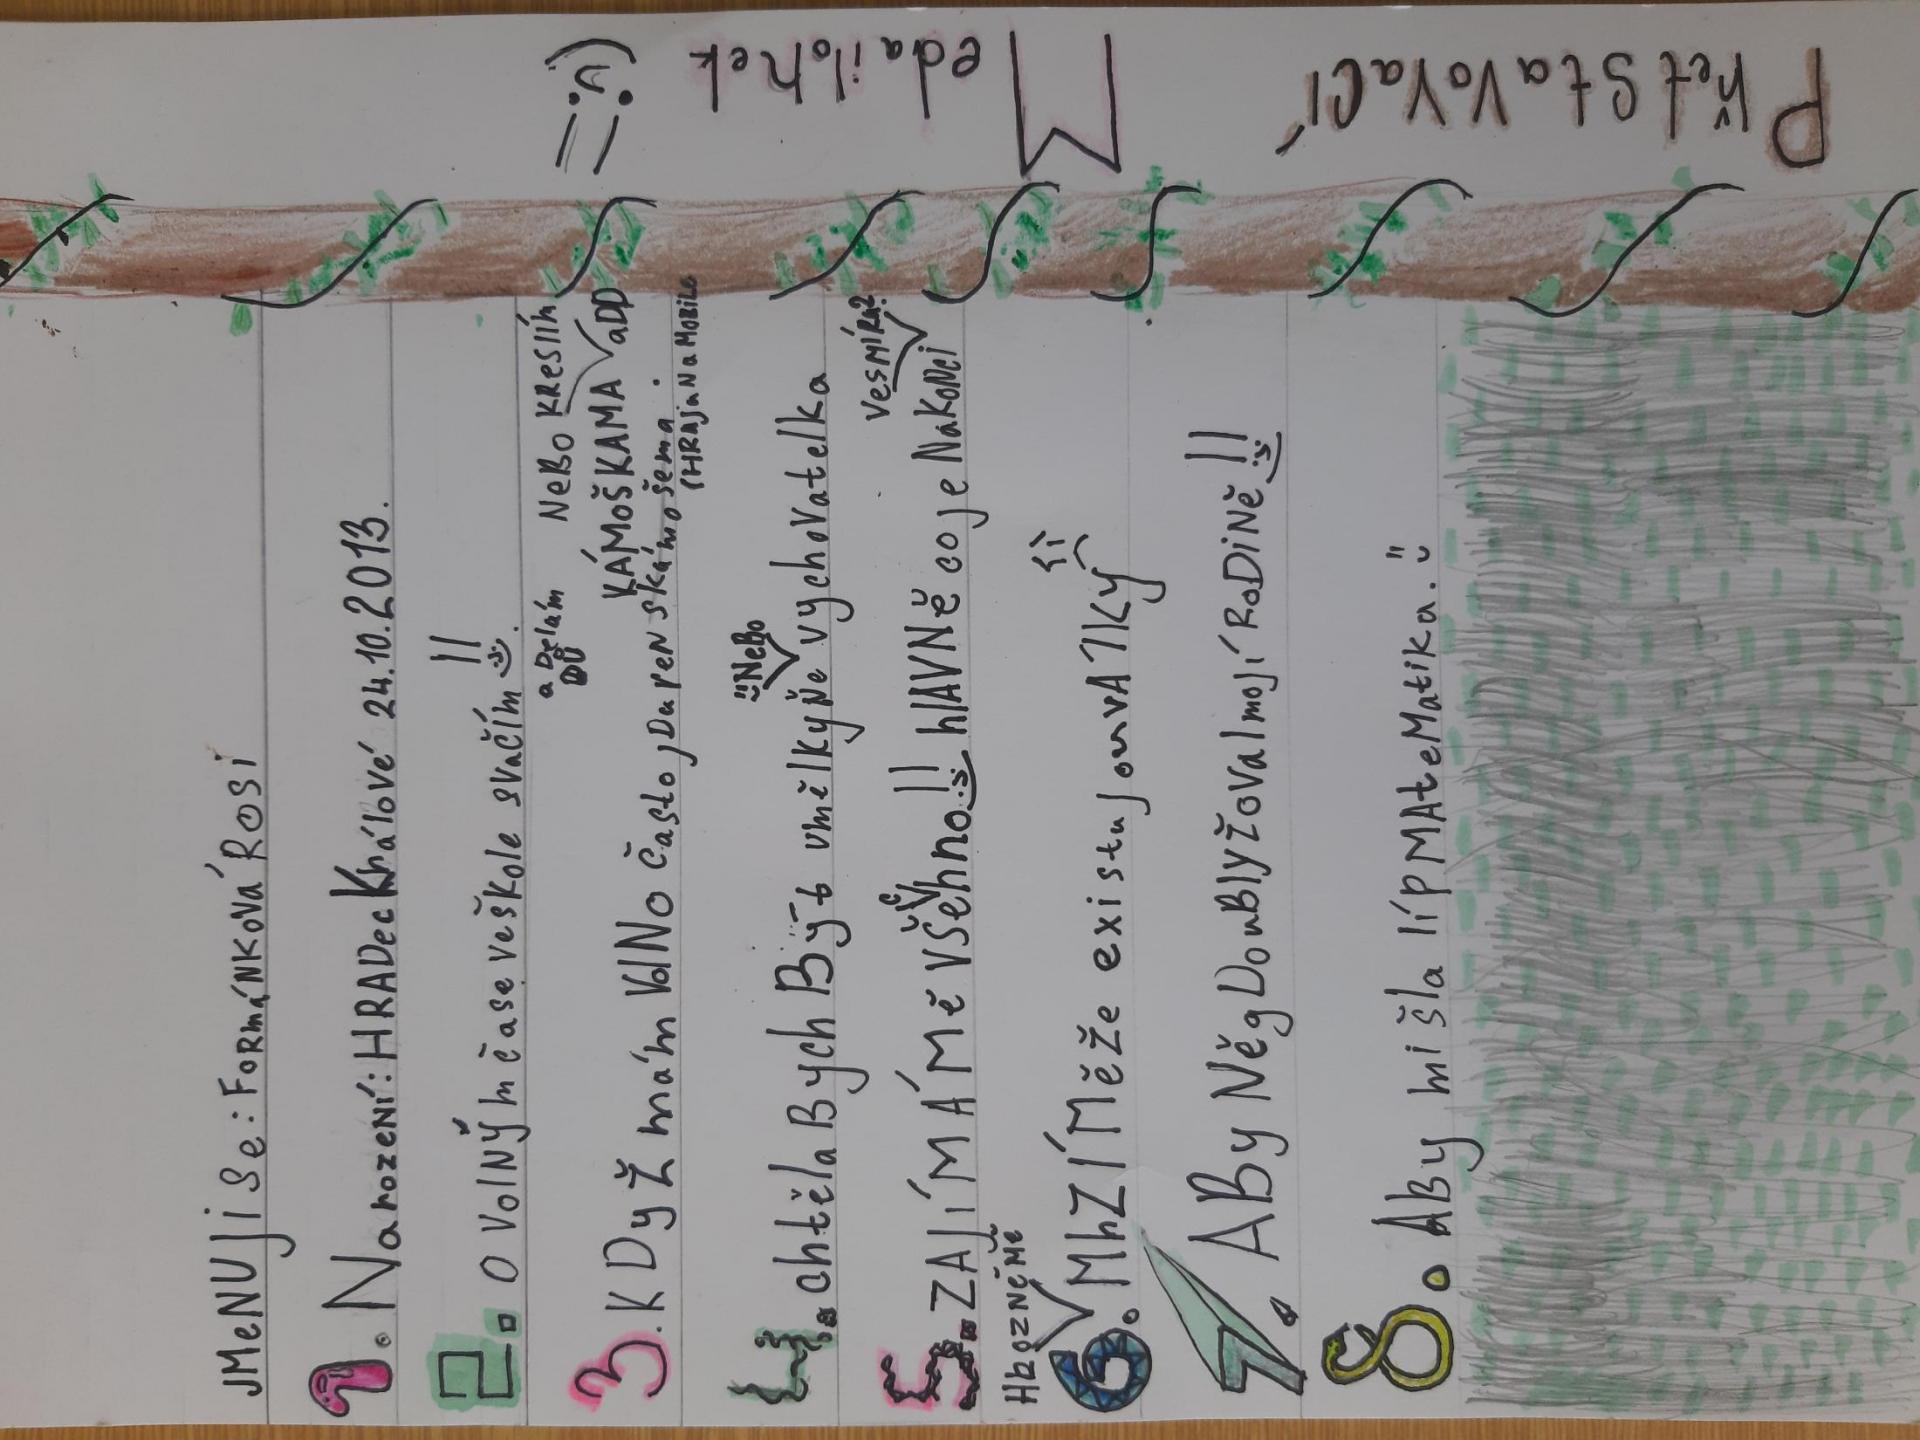 Přetstavovací
Medailonek
JMeNUji se: FormáNková Rosi
1. Narození: HRADec Králové 24.10.2013.
2. O volNým čase ve škole svačím!!
a Dělám DÚ
NeBo KResliM
3. KDyŽ mám volNo často jDu veN s kámošema.
KÁMOŠKAMA
(HRaja Na MoBile
4. chtěla Bych Být umělkyňe vychovatelka
NeBo
5. ZAJÍMÁ Mě vŠehno!! hlAVNě co je NaKoNci
vesMíRu?
6. MrZÍ Mě že existujou vAlky
HRozNě Mě
7. ABy Něg DouBlyŽoval mojí RoDiNě!!
8. ABy mi šla líp MAteMatika.